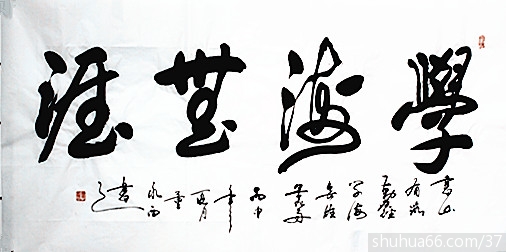 學海無涯
書山
有路
勤徑
學海
無涯
丙申
年
夏月
書
shuhua66.com/37